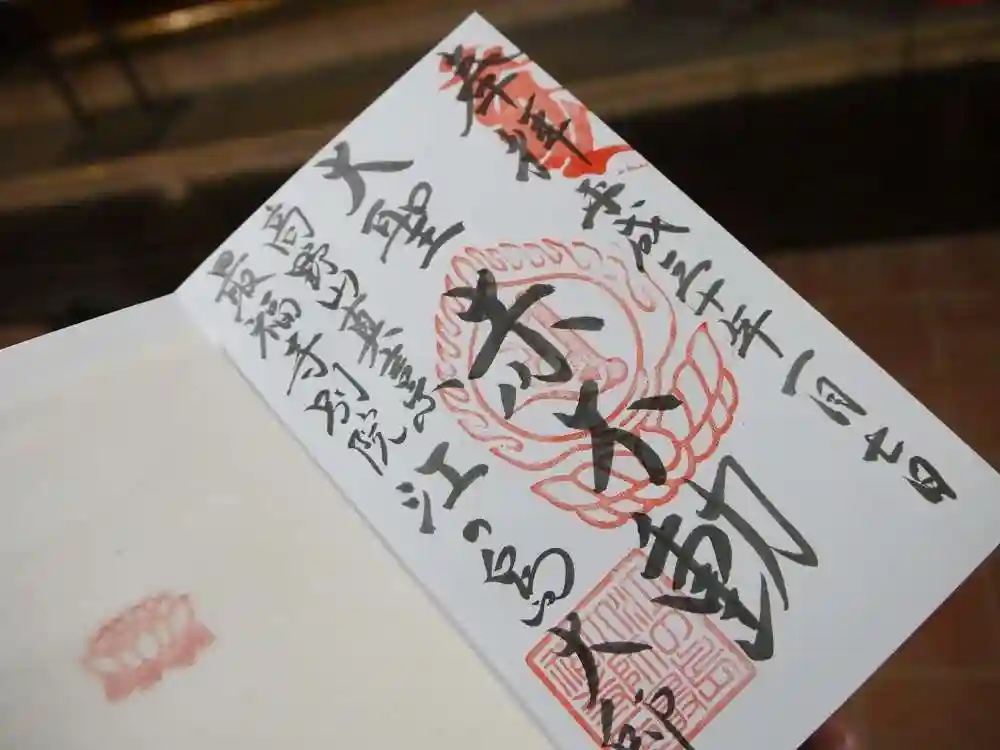 奉拝
平成三十年一月吉日
赤不動
大聖
江の島大師
高野山真言宗
最福寺別院